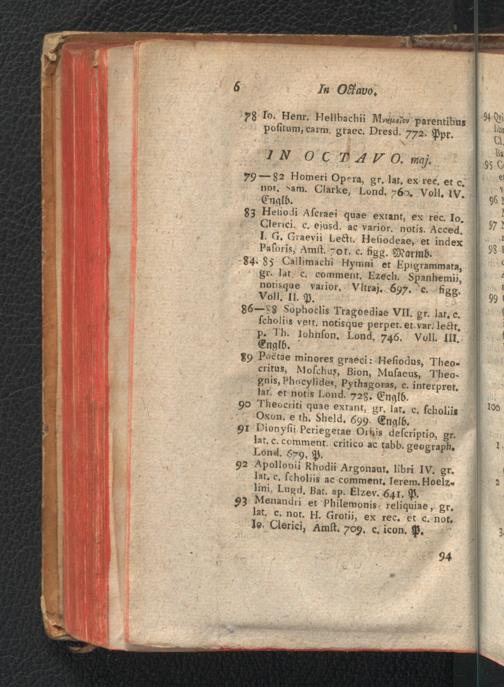 6 In Octavo.
78 Io. Henr. Hellbachii Μνημεῖον parentibus
positum, carm. graec. Dresd. 772. Ppr.
IN OCTAVO. maj.
79—82 Homeri Opera, gr. lat. ex rec. et c.
not. Sam. Clarke, Lond. 760. Voll. IV.
Englb.
83 Hesiodi Ascraei quae extant, ex rec. Io.
Clerici. c. ejusd. ac varior. notis. Acced.
I. G. Graevii Lectt. Hesiodeae, et index
Pasoris, Amst. 701. c. figg. Marmb.
84. 85 Callimachi Hymni et Epigrammata,
gr. lat c. comment. Ezech. Spanhemii,
notisque varior. Vltraj. 697. c. figg.
Voll. II. P.
86—88 Sophoclis Tragoediae VII. gr. lat. c.
scholiis vett. notisque perpet. et var. lectt,
p. Th. Iohnson. Lond, 746. Voll. III.
Englb.
89 Poëtae minores graeci: Hesiodus, Theo-
critus, Moschus, Bion, Musaeus, Theo-
gnis, Phocylides, Pythagoras, c. interpret.
lat. et notis Lond. 728. Englb.
90 Theocriti quae extant, gr. lat. c. scholiis
Oxon. e th. Sheld. 699. Englb.
91 Dionysii Periegetae Orbis descriptio, gr.
lat. c. comment. critico ac tabb. geograph.
Lond. 679. P.
92 Apollonii Rhodii Argonaut. libri IV. gr.
lat. c. scholiis ac comment. Ierem. Hoelz-
lini, Lugd. Bat. ap. Elzev. 641. P.
93 Menandri et Philemonis reliquiae, gr.
lat. c. not. H. Grotii, ex rec. et c. not.
Io. Clerici, Amst. 709. c. icon. P.
94
94 Qui
95 C
96
97
98
99
100
1
2